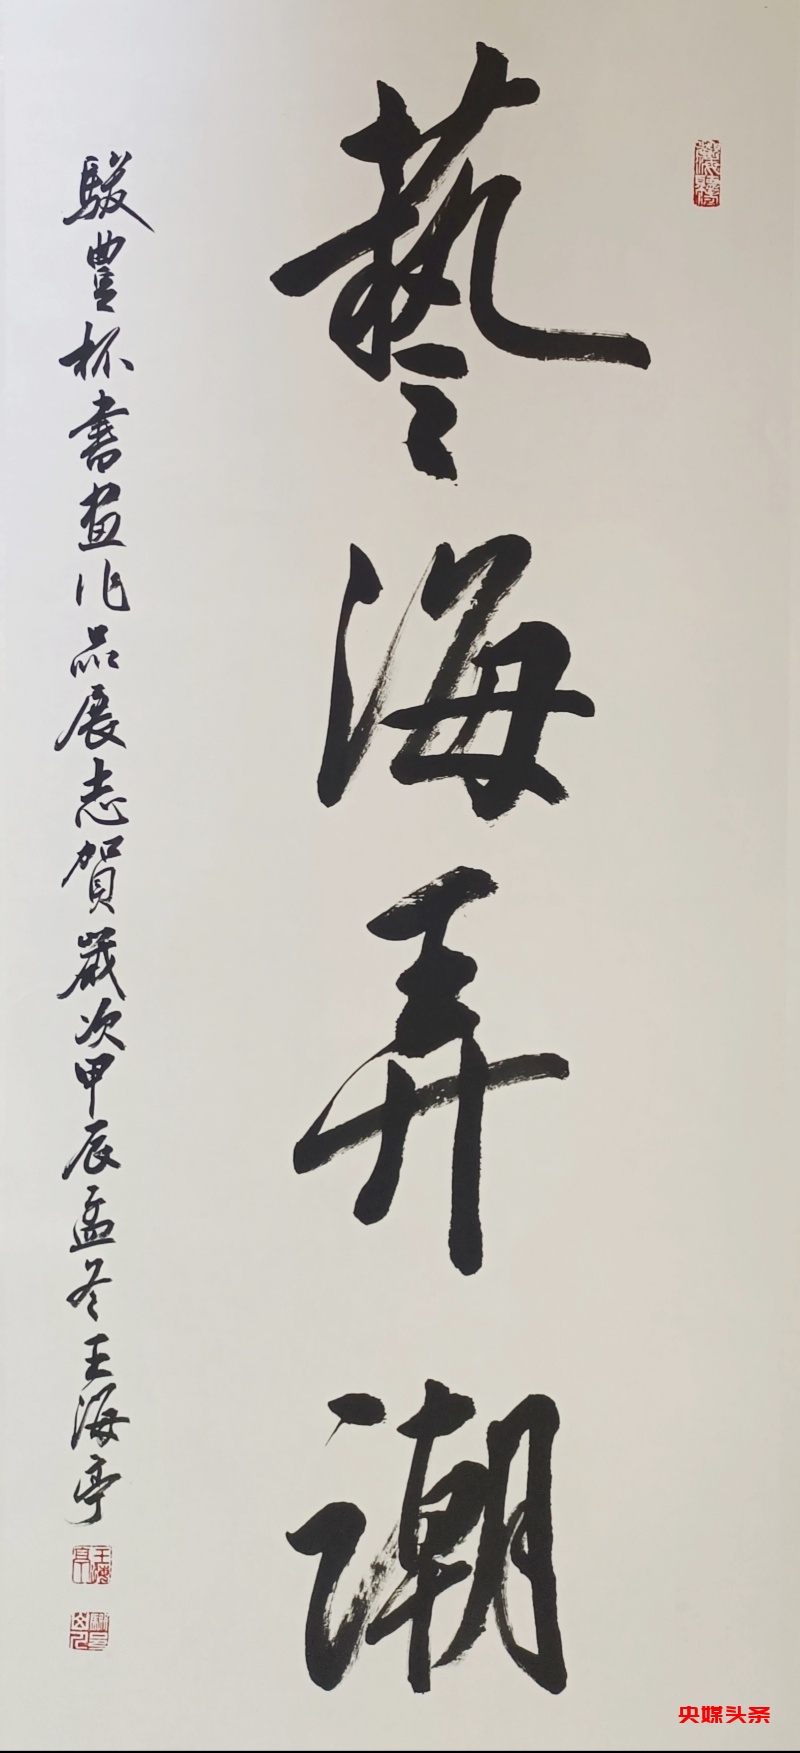 藝海弄潮
駿豊杯書畫作品展志賀歲次甲辰孟冬王海亭
王海亭
央媒头条